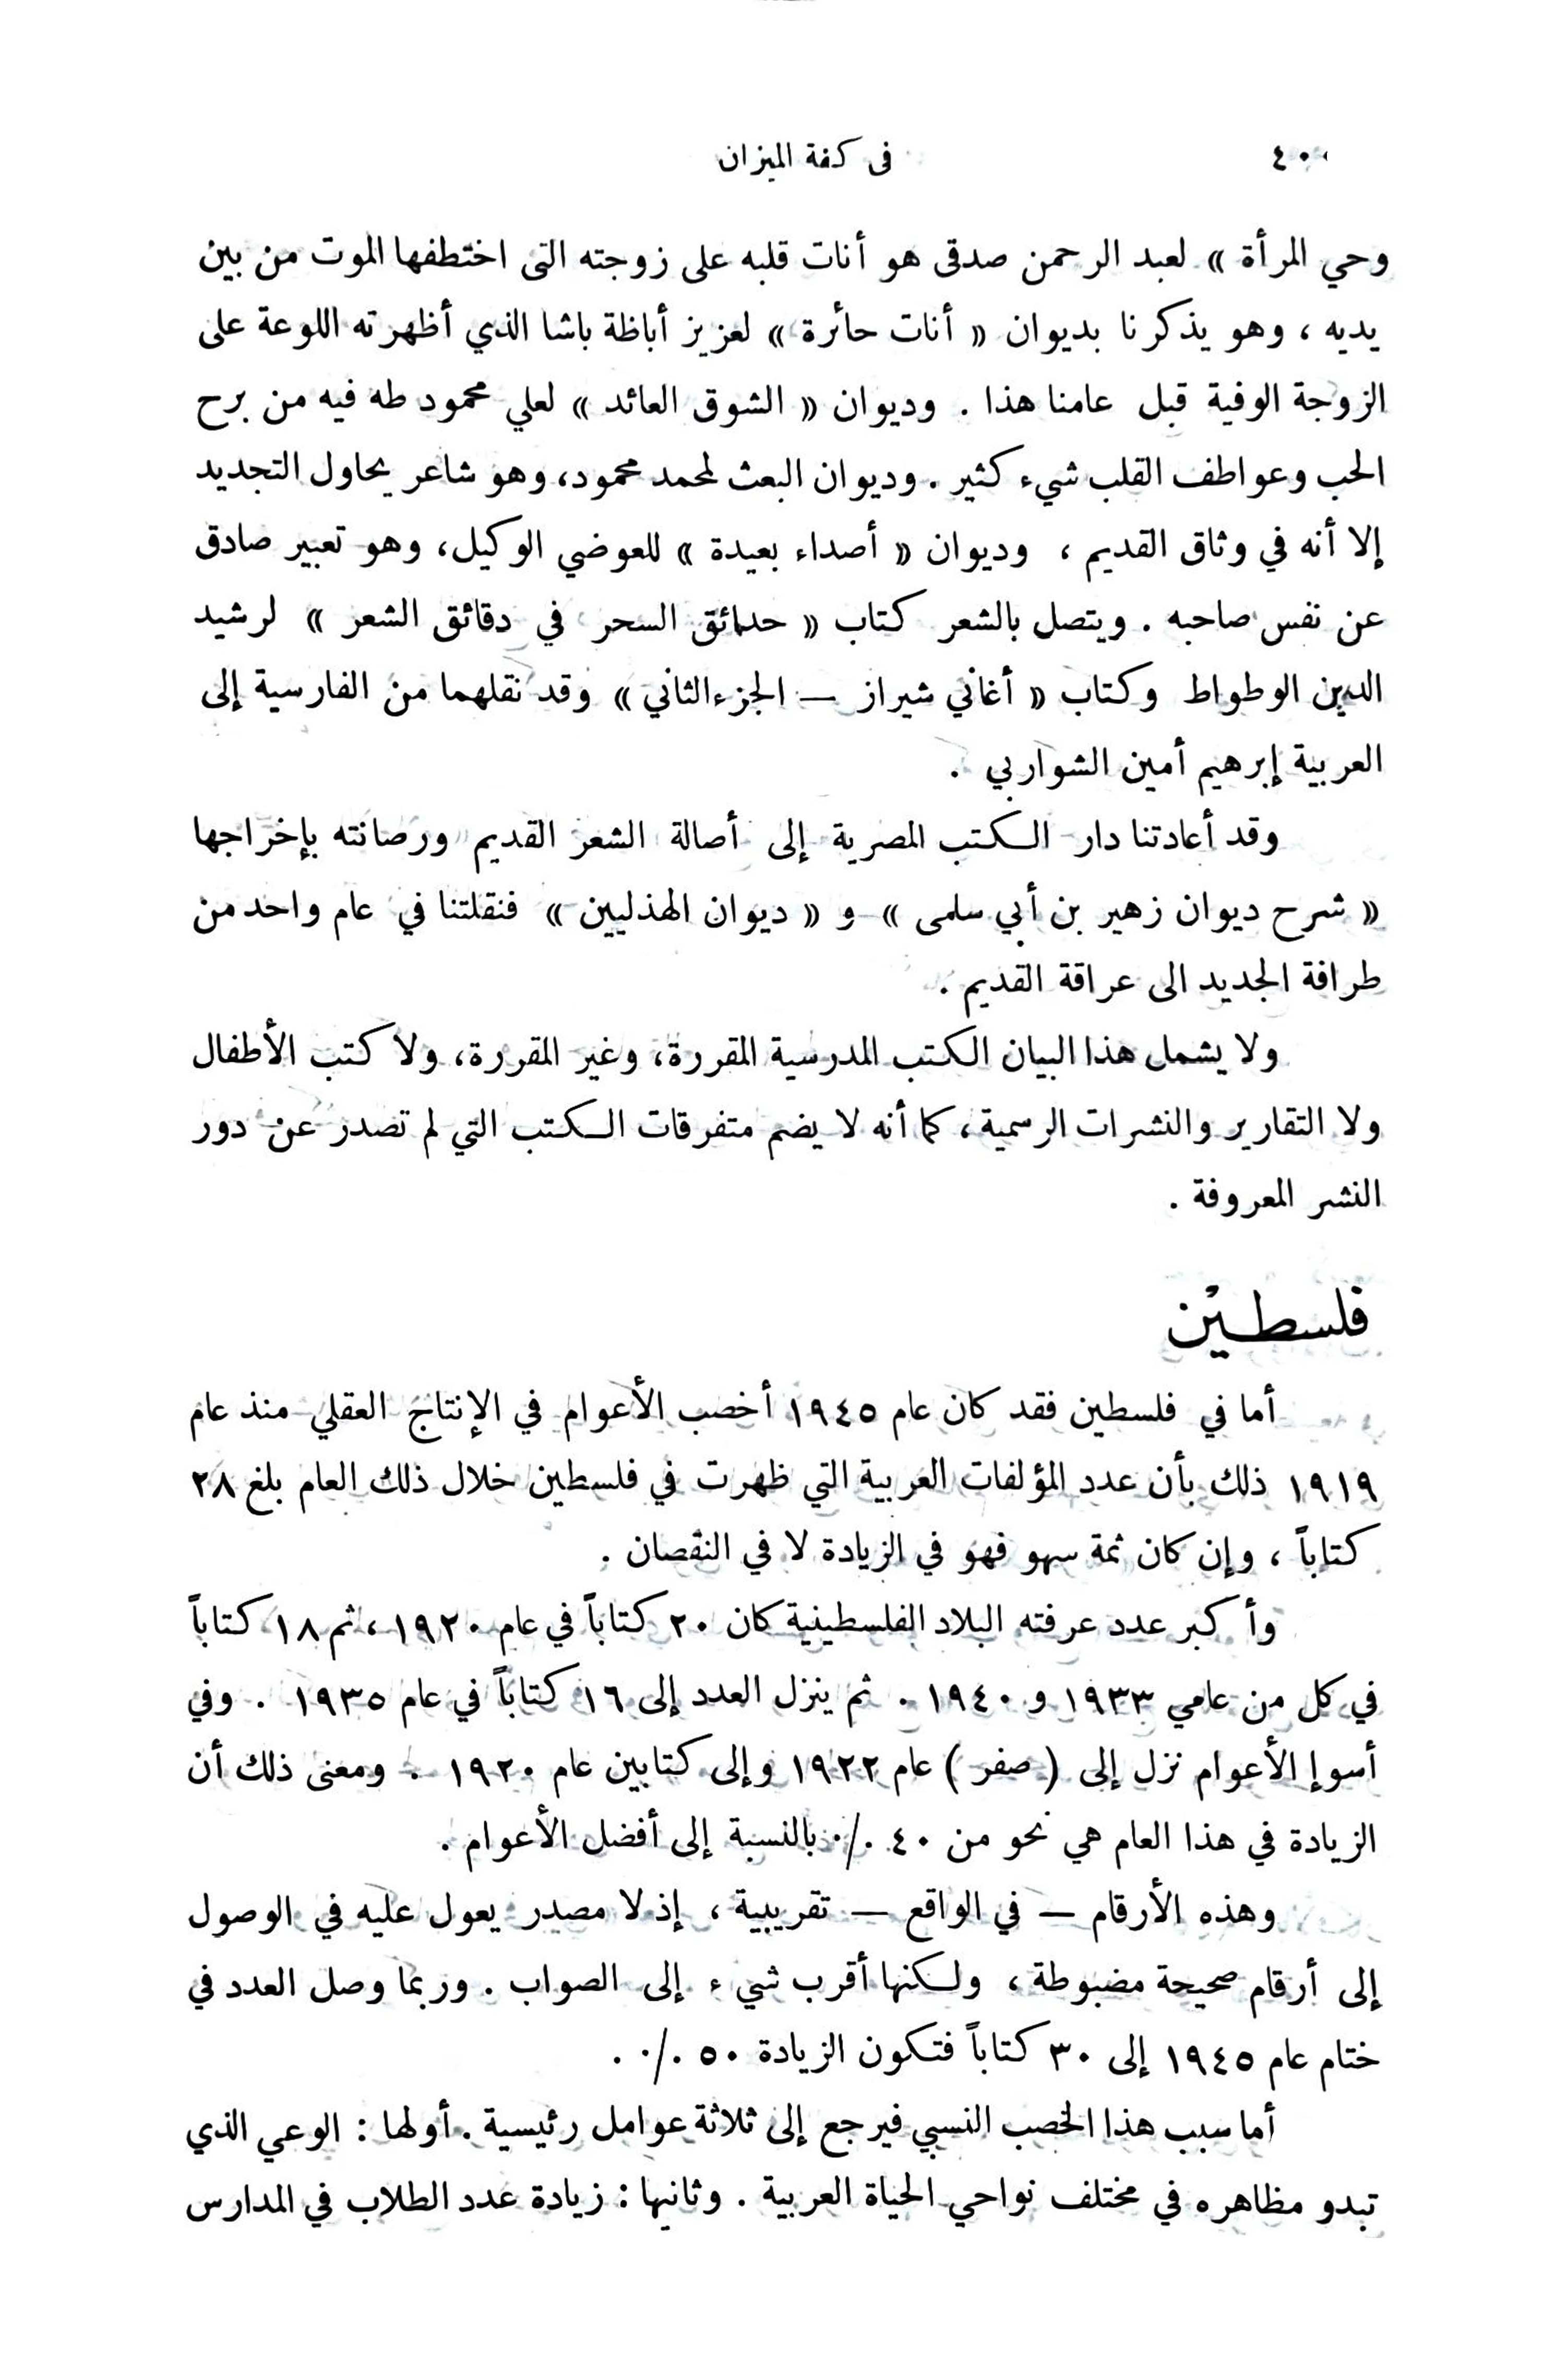 ٤٠٠ فى كفة الميزان
وحي المرأة » لعبد الرحمن صدقى هو أنات قلبه على زوجته التى اختطفها الموت من بين
يديه ، وهو يذكرنا بديوان « أنات حائرة » لعزيز أباظة باشا الذي أظهرته اللوعة على
الزوجة الوفية قبل عامنا هذا . وديوان « الشوق العائد » لعلي محمود طه فيه من برح
الحب وعواطف القلب شيء كثير . وديوان البعث لمحمد محمود، وهو شاعر يحاول التجديد
إلا أنه في وثاق القديم ، وديوان « أصداء بعيدة » للعوضي الوكيل، وهو تعبير صادق
عن نفس صاحبه . ويتصل بالشعر كتاب « حدائق السحر في دقائق الشعر » لرشيد
الدين الوطواط وكتاب « أغاني شيراز — الجزء الثاني » وقد نقلهما من الفارسية إلى
العربية إبرهيم أمين الشواربي .
وقد أعادتنا دار الكتب المصرية إلى أصالة الشعر القديم ورصانته بإخراجها
« شرح ديوان زهير بن أبي سلمى » و « ديوان الهذليين » فنقلتنا في عام واحد من
طرافة الجديد الى عراقة القديم .
ولا يشمل هذا البيان الكتب المدرسية المقررة، وغير المقررة، ولا كتب الأطفال
ولا التقارير والنشرات الرسمية، كما أنه لا يضم متفرقات الكتب التي لم تصدر عن دور
النشر المعروفة .
فلسطين
أما في فلسطين فقد كان عام ١٩٤٥ أخصب الأعوام في الإنتاج العقلي منذ عام
١٩١٩ ذلك بأن عدد المؤلفات العربية التي ظهرت في فلسطين خلال ذلك العام بلغ ٢٨
كتاباً ، وإن كان ثمة سهو فهو في الزيادة لا في النقصان .
وأكبر عدد عرفته البلاد الفلسطينية كان ٢٠ كتاباً في عام ١٩٢٠ ، ثم ١٨ كتاباً
في كل من عامي ١٩٣٣ و ١٩٤٠ . ثم ينزل العدد إلى ١٦ كتاباً في عام ١٩٣٥ . وفي
أسوإ الأعوام نزل إلى ( صفر ) عام ١٩٢٢ وإلى كتابين عام ١٩٢٠ . ومعنى ذلك أن
الزيادة في هذا العام هي نحو من ٤٠ ٠/٠ بالنسبة إلى أفضل الأعوام .
وهذه الأرقام — في الواقع — تقريبية ، إذ لا مصدر يعول عليه في الوصول
إلى أرقام صحيحة مضبوطة ، ولكنها أقرب شيء إلى الصواب . وربما وصل العدد في
ختام عام ١٩٤٥ إلى ٣٠ كتاباً فتكون الزيادة ٥٠ ٠/٠ .
أما سبب هذا الخصب النسبي فيرجع إلى ثلاثة عوامل رئيسية . أولها : الوعي الذي
تبدو مظاهره في مختلف نواحي الحياة العربية . وثانيها : زيادة عدد الطلاب في المدارس